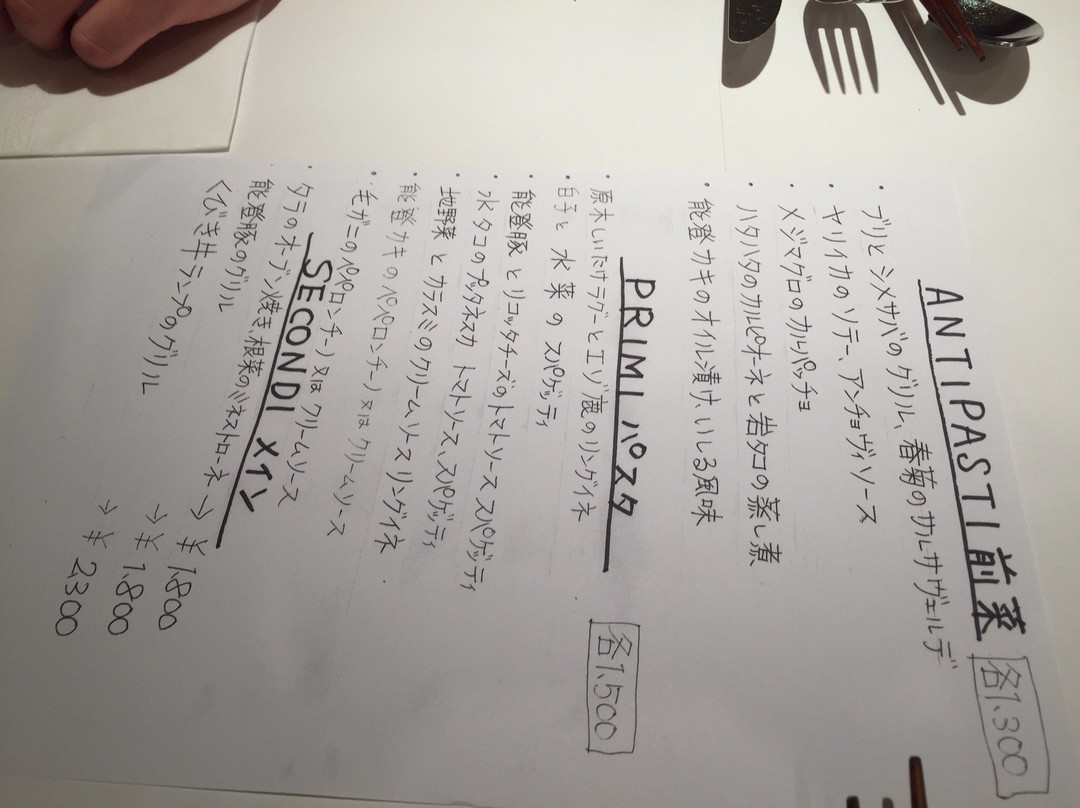 ANTIPASTI 前菜 各1.300
・ブリとシメサバのグリル、春菊のサルサヴェルデ
・ヤリイカのソテー、アンチョヴィソース
・メジマグロのカルパッチョ
・ハタハタのカルピオーネと岩ダコの蒸し煮
・能登カキのオイル漬け、いしる風味
PRIMI パスタ 各1.500
・原木しいたけラグーとエゾ鹿のリングイネ
・白子と水菜のスパゲッティ
・能登豚とリコッタチーズのトマトソーススパゲッティ
・水タコのプッタネスカ トマトソース、スパゲッティ
・地野菜とカラスミのクリームソースリングイネ
・能登カキのペペロンチーノ又はクリームソース
・毛ガニのペペロンチーノ又はクリームソース
SECONDI メイン
・タラのオーブン焼き、根菜のミネストローネ → ¥1.800
能登豚のグリル → ¥1.800
くびき牛ランプのグリル → ¥2300